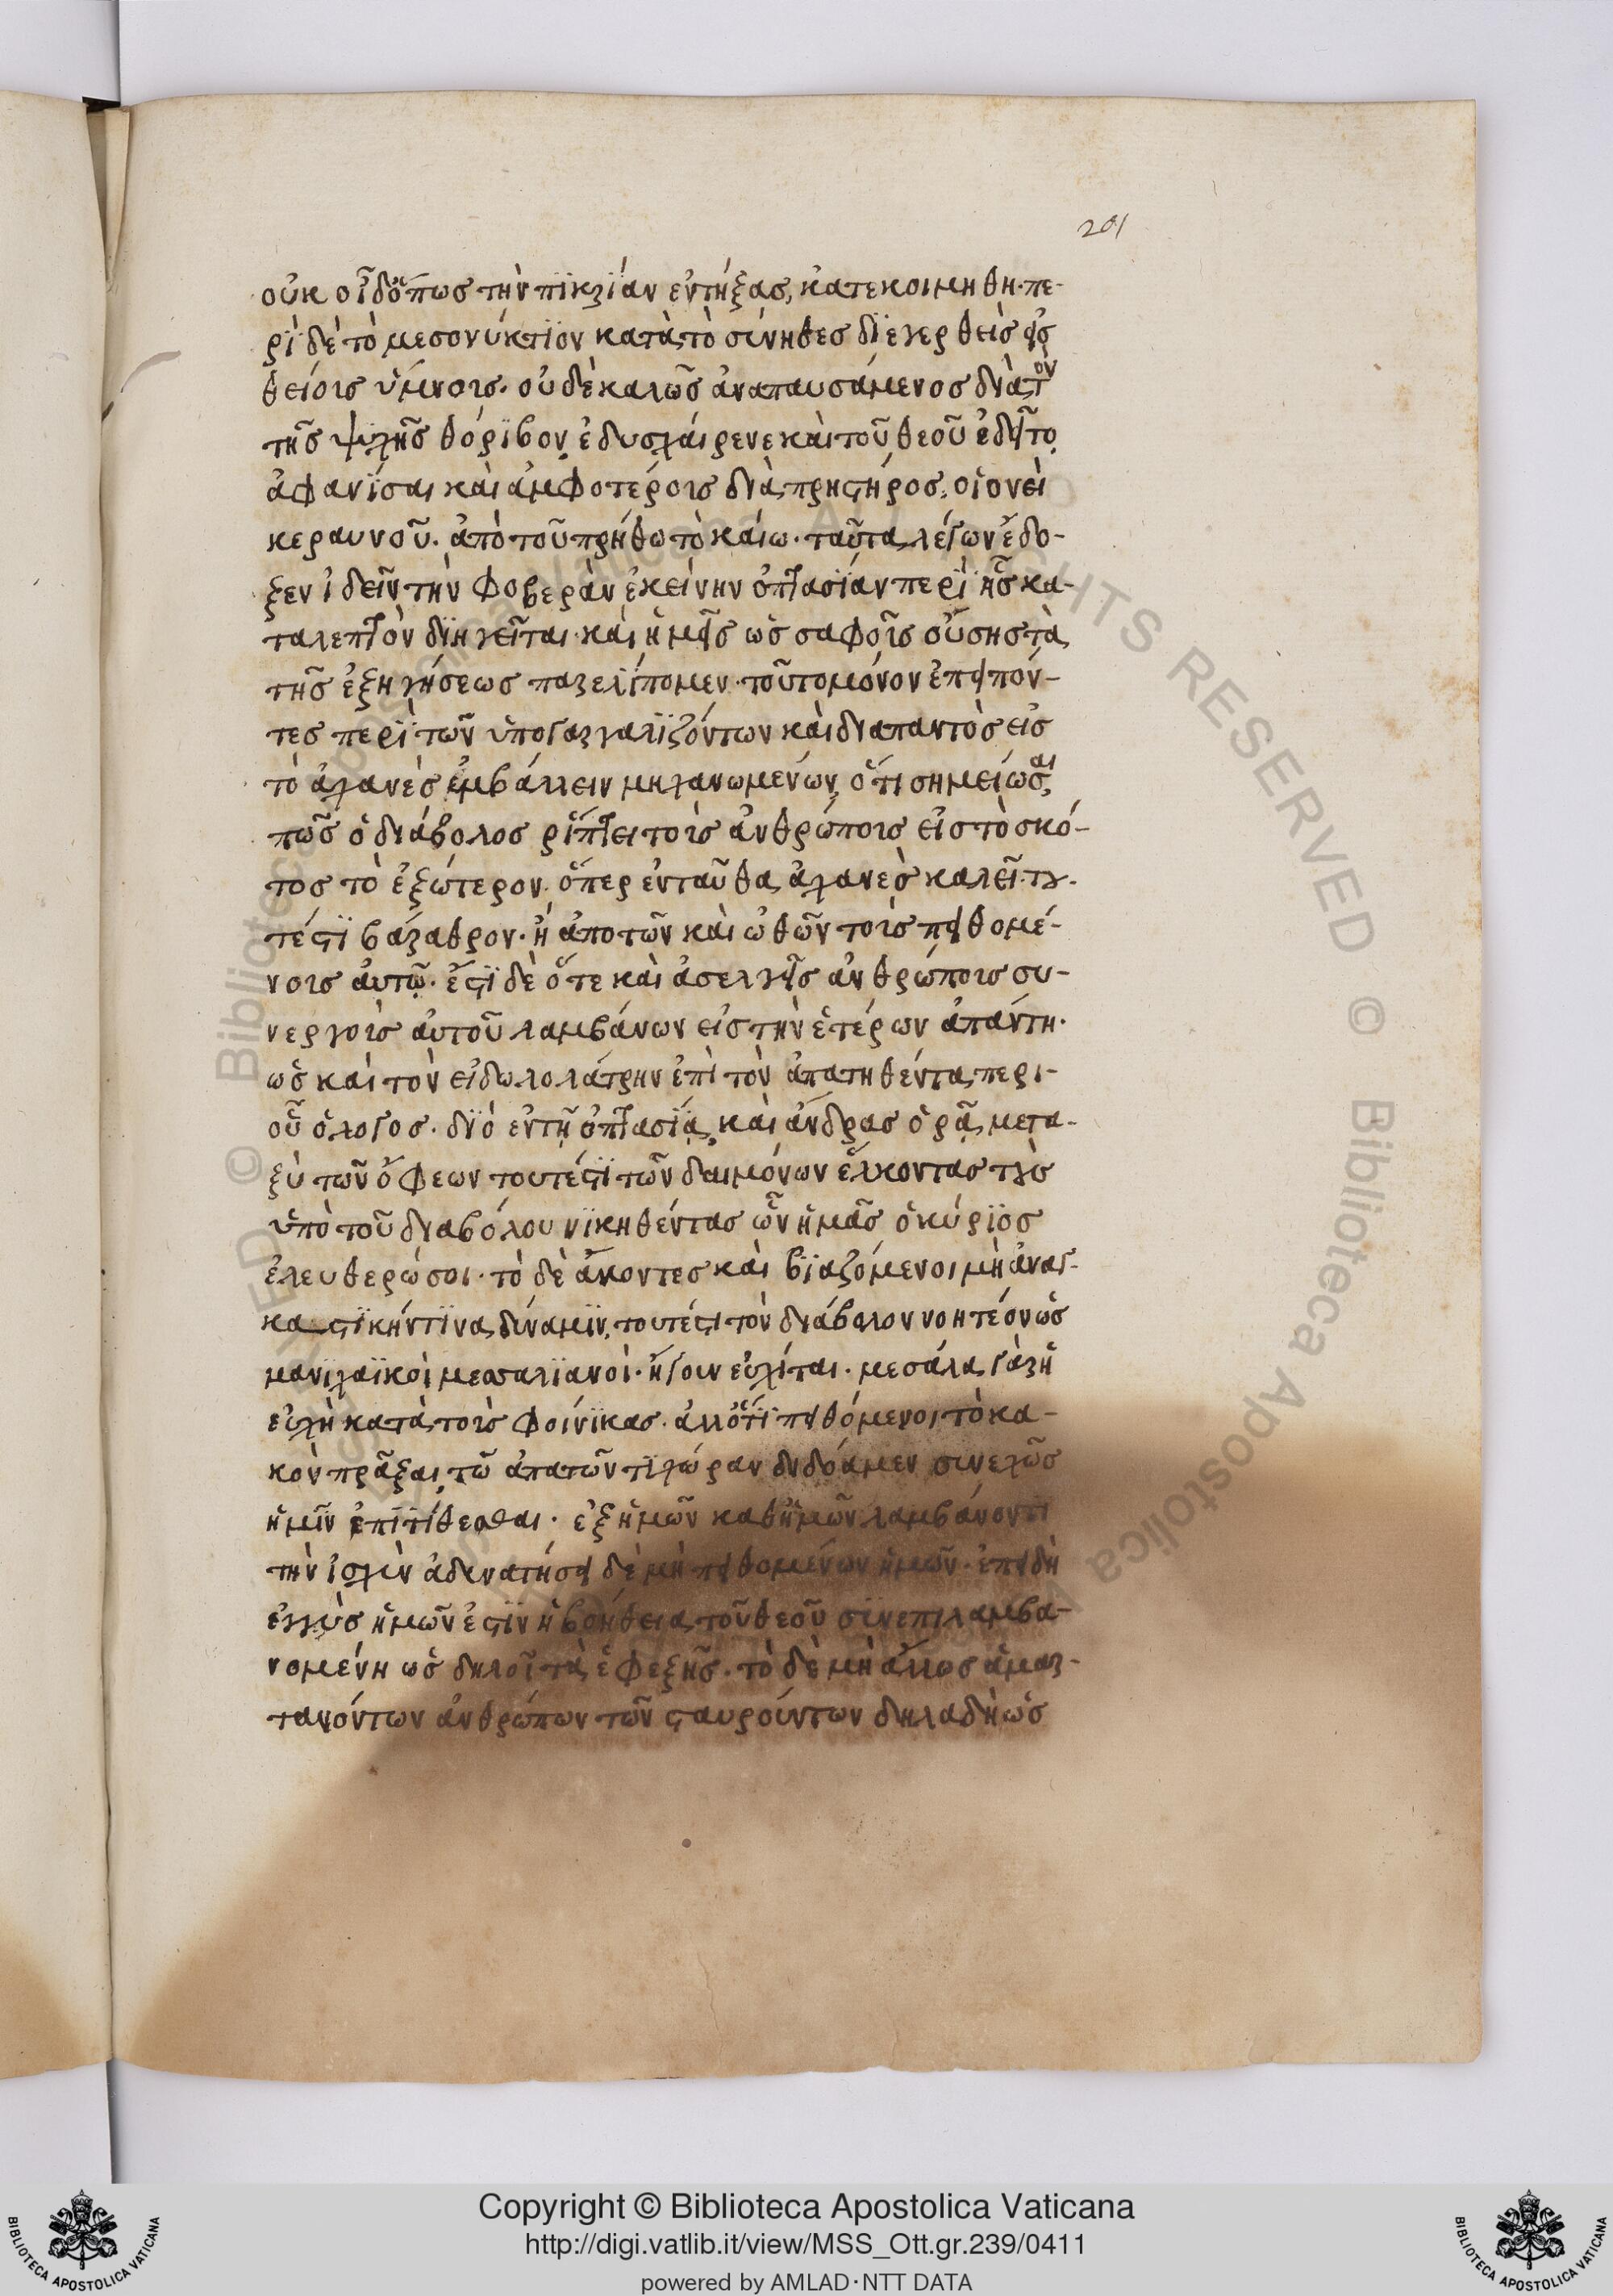 201
οὐκ οἶδ' ὅπως τὴν πϊκρίαν ἐντήξας, κατεκοιμήθη· πε-
ρὶ δὲ τὸ μεσονύκτϊον κατὰ τὸ σύνηθες δϊεγερθεὶς εἰς
θείοις ὕμνοις. οὐδὲ καλῶς ἀναπαυσάμενος διὰ τὸν
τῆς ψυχῆς θόρϊβον, ἐδυσχέραινε καὶ τοῦ θεοῦ ἐδεῖτο
ἀφανίσαι καὶ ἀμφοτέροις διὰ πρηστῆρος, οἱονεὶ
κεραυνοῦ. ἀπὸ τοῦ πρήθω τὸ καίω. ταῦτα λέγων ἔδο-
ξεν ἰδεῖν τὴν φοβερὰν ἐκείνην ὀπτασϊαν περὶ ἧς κα-
ταλεπτὸν δϊηγεῖται· καὶ ἡμεῖς ὡς σαφοῖς οὔσης τὰ
τῆς ἐξηγήσεως παρελίπομεν· τοῦτο μόνον ἐπειπόν-
τες περὶ τῶν ὑπογαργαλϊζόντων καὶ διαπαντὸς εἰς
τὸ ἀχανὲς ἐμβάλλειν μηχανωμένων, ὅτι σημείωσαι,
πῶς ὁ διάβολος ῥίπτει τοὶς ἀνθρώποις εἰς τὸ σκό-
τος τὸ ἐξώτερον. ὅπερ ἐνταῦθα ἀχανὲς καλεῖ· τχ-
τέστϊ βάραθρον. ἢ ἀποτῶν καὶ ὠθῶν τοὶς πειθομέ-
νοις ἀυτῷ. ἔστϊ δὲ ὅτε καὶ ἀσελγεῖς ἀνθρώποις συ-
νεργοὶς αὐτοῦ λαμβάνων εἰς τὴν ἑτέρων ἀπάντη·
ὡς καὶ τὸν εἰδωλολάτρην ἐπὶ τὸν ἀπατηθέντα, περι-
οὗ ὁ λόγος. δϊὸ ἐν τῇ ὀπτασίᾳ καὶ ἄνδρας ὁρᾷ, μετα-
ξὺ τῶν ὄφεων τουτέστϊ τῶν δαιμόνων ἕλκοντας τοὺς
ὑπὸ τοῦ διαβόλου νϊκηθέντας ὧν ἡμᾶς ὁ κύριος
ἐλευθερώσοι. τὸ δὲ ἄκοντες καὶ βϊαζόμενοι μὴ ἀναγ-
καστϊκήν τϊνα δύναμϊν, τουτέστι τὸν διάβολον νοητέον ὡς
μανϊχαϊκοὶ μεσσαλϊανοὶ. ἤγουν εὐχίται. μεσάλα γὰρ ἡ
εὐχὴ κατὰ τοὶς φοίνϊκας. ἀλλ' ὅτϊ πειθόμενοι τὸ κα-
κὸν πρᾶξαι, τῷ ἀπατῶντι χώραν διδόαμεν συνεχῶς
ἡμῖν ἐπϊτίθεσθαι. ἐξ ἡμῶν καθ' ἡμῶν λαμβάνοντϊ
τὴν ἰσχὺν ἀδυνατήσει δὲ μὴ πειθομένων ἡμῶν. ἐπειδὴ
ἐγγὺς ἡμῶν ἐστϊν ἡ βοήθεια τοῦ θεοῦ σϋνεπιλαμβα-
νομένη ὡς δηλοῖ τὰ ἐφεξῆς. τὸ δὲ μὴ ἄλλως ἁμαρ-
τανόντων ἀνθρώπων τῶν σταυρούντων δηλαδὴ ὡς
Copyright © Biblioteca Apostolica Vaticana
http://digi.vatlib.it/view/MSS_Ott.gr.239/0411
powered by AMLAD·NTT DATA
BIBLIOTECA APOSTOLICA VATICANA
BIBLIOTECA APOSTOLICA VATICANA